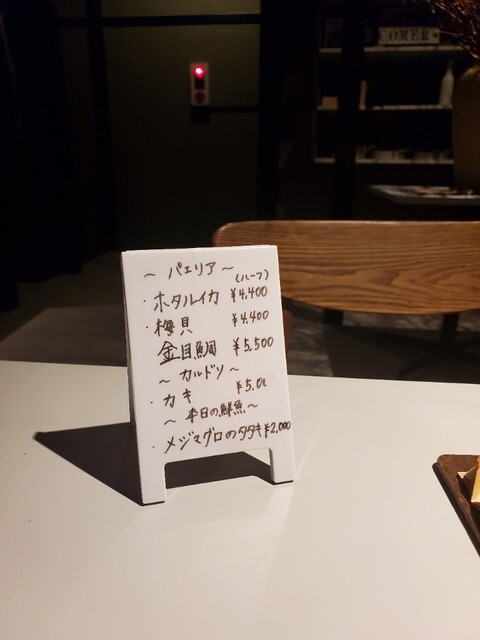 COMER
～ パエリア ～
(ハーフ)
・ホタルイカ ¥4,400
・梅貝 ¥4,400
金目鯛 ¥5,500
～ カルドソ ～
・カキ ¥5.0
～ 本日の鮮魚 ～
・メジマグロのタタキ ¥2,000